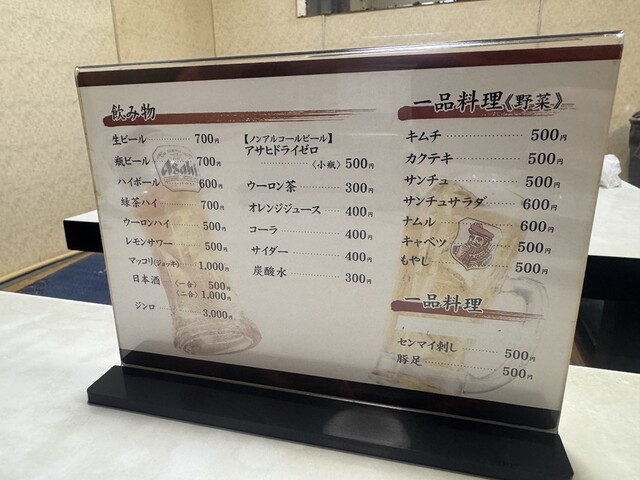 飲み物
生ビール 700円
瓶ビール 700円
ハイボール 600円
緑茶ハイ 700円
ウーロンハイ 500円
レモンサワー 500円
マッコリ(ジョッキ) 1,000円
日本酒 〈一合〉 500円
〈二合〉 1,000円
ジンロ 3,000円
【ノンアルコールビール】
アサヒドライゼロ
〈小瓶〉 500円
ウーロン茶 300円
オレンジジュース 400円
コーラ 400円
サイダー 400円
炭酸水 300円
Asahi
一品料理《野菜》
キムチ 500円
カクテキ 500円
サンチュ 500円
サンチュサラダ 600円
ナムル 600円
キャベツ 500円
もやし 500円
一品料理
センマイ刺し 500円
豚足 500円